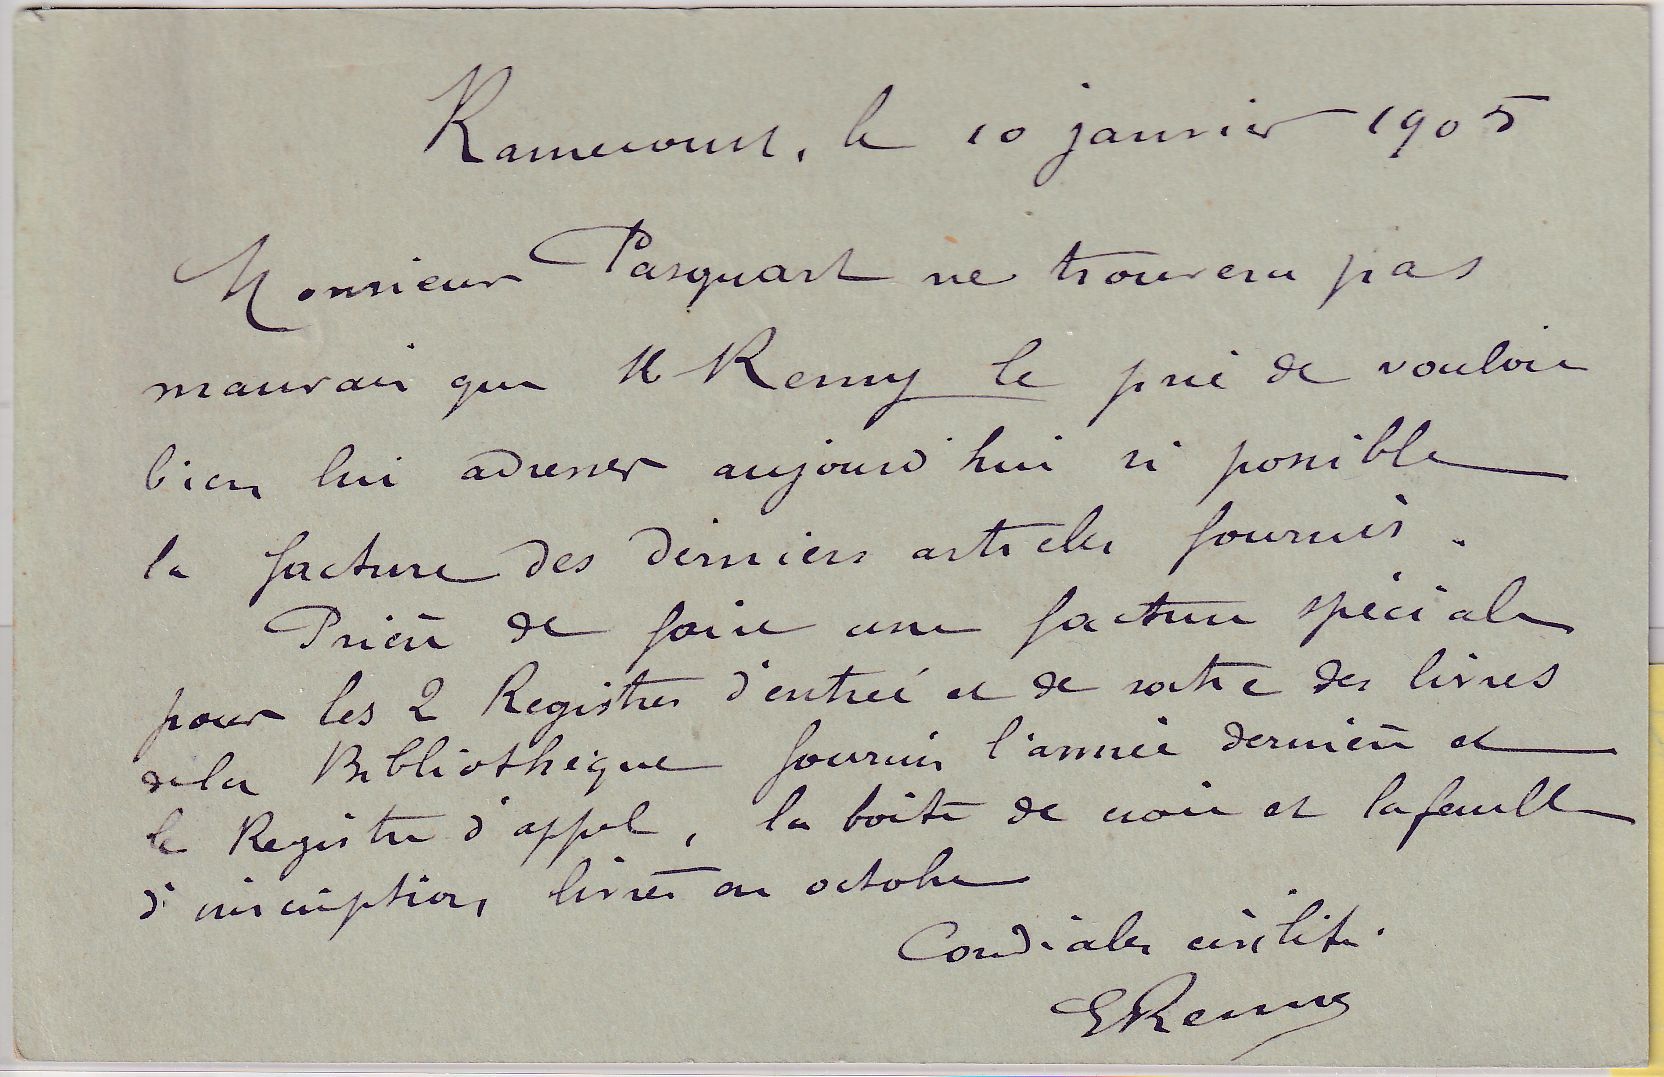 Ramecourt, le 10 janvier 1905
Monsieur Pasquart ne trouvera pas
mauvais que M Remy le prie de vouloir
bien lui adresser aujourd'hui si possible
la facture des derniers articles fournis.
Prière de faire une facture spéciale
pour les 2 Registres d'entrée et de sortie des livres
de la Bibliothèque fournis l'année dernière et
le Registre d'appel, la boite de craie et la feuille
d'inscription, livrés en octobre
Cordiales civilités.
E Remy